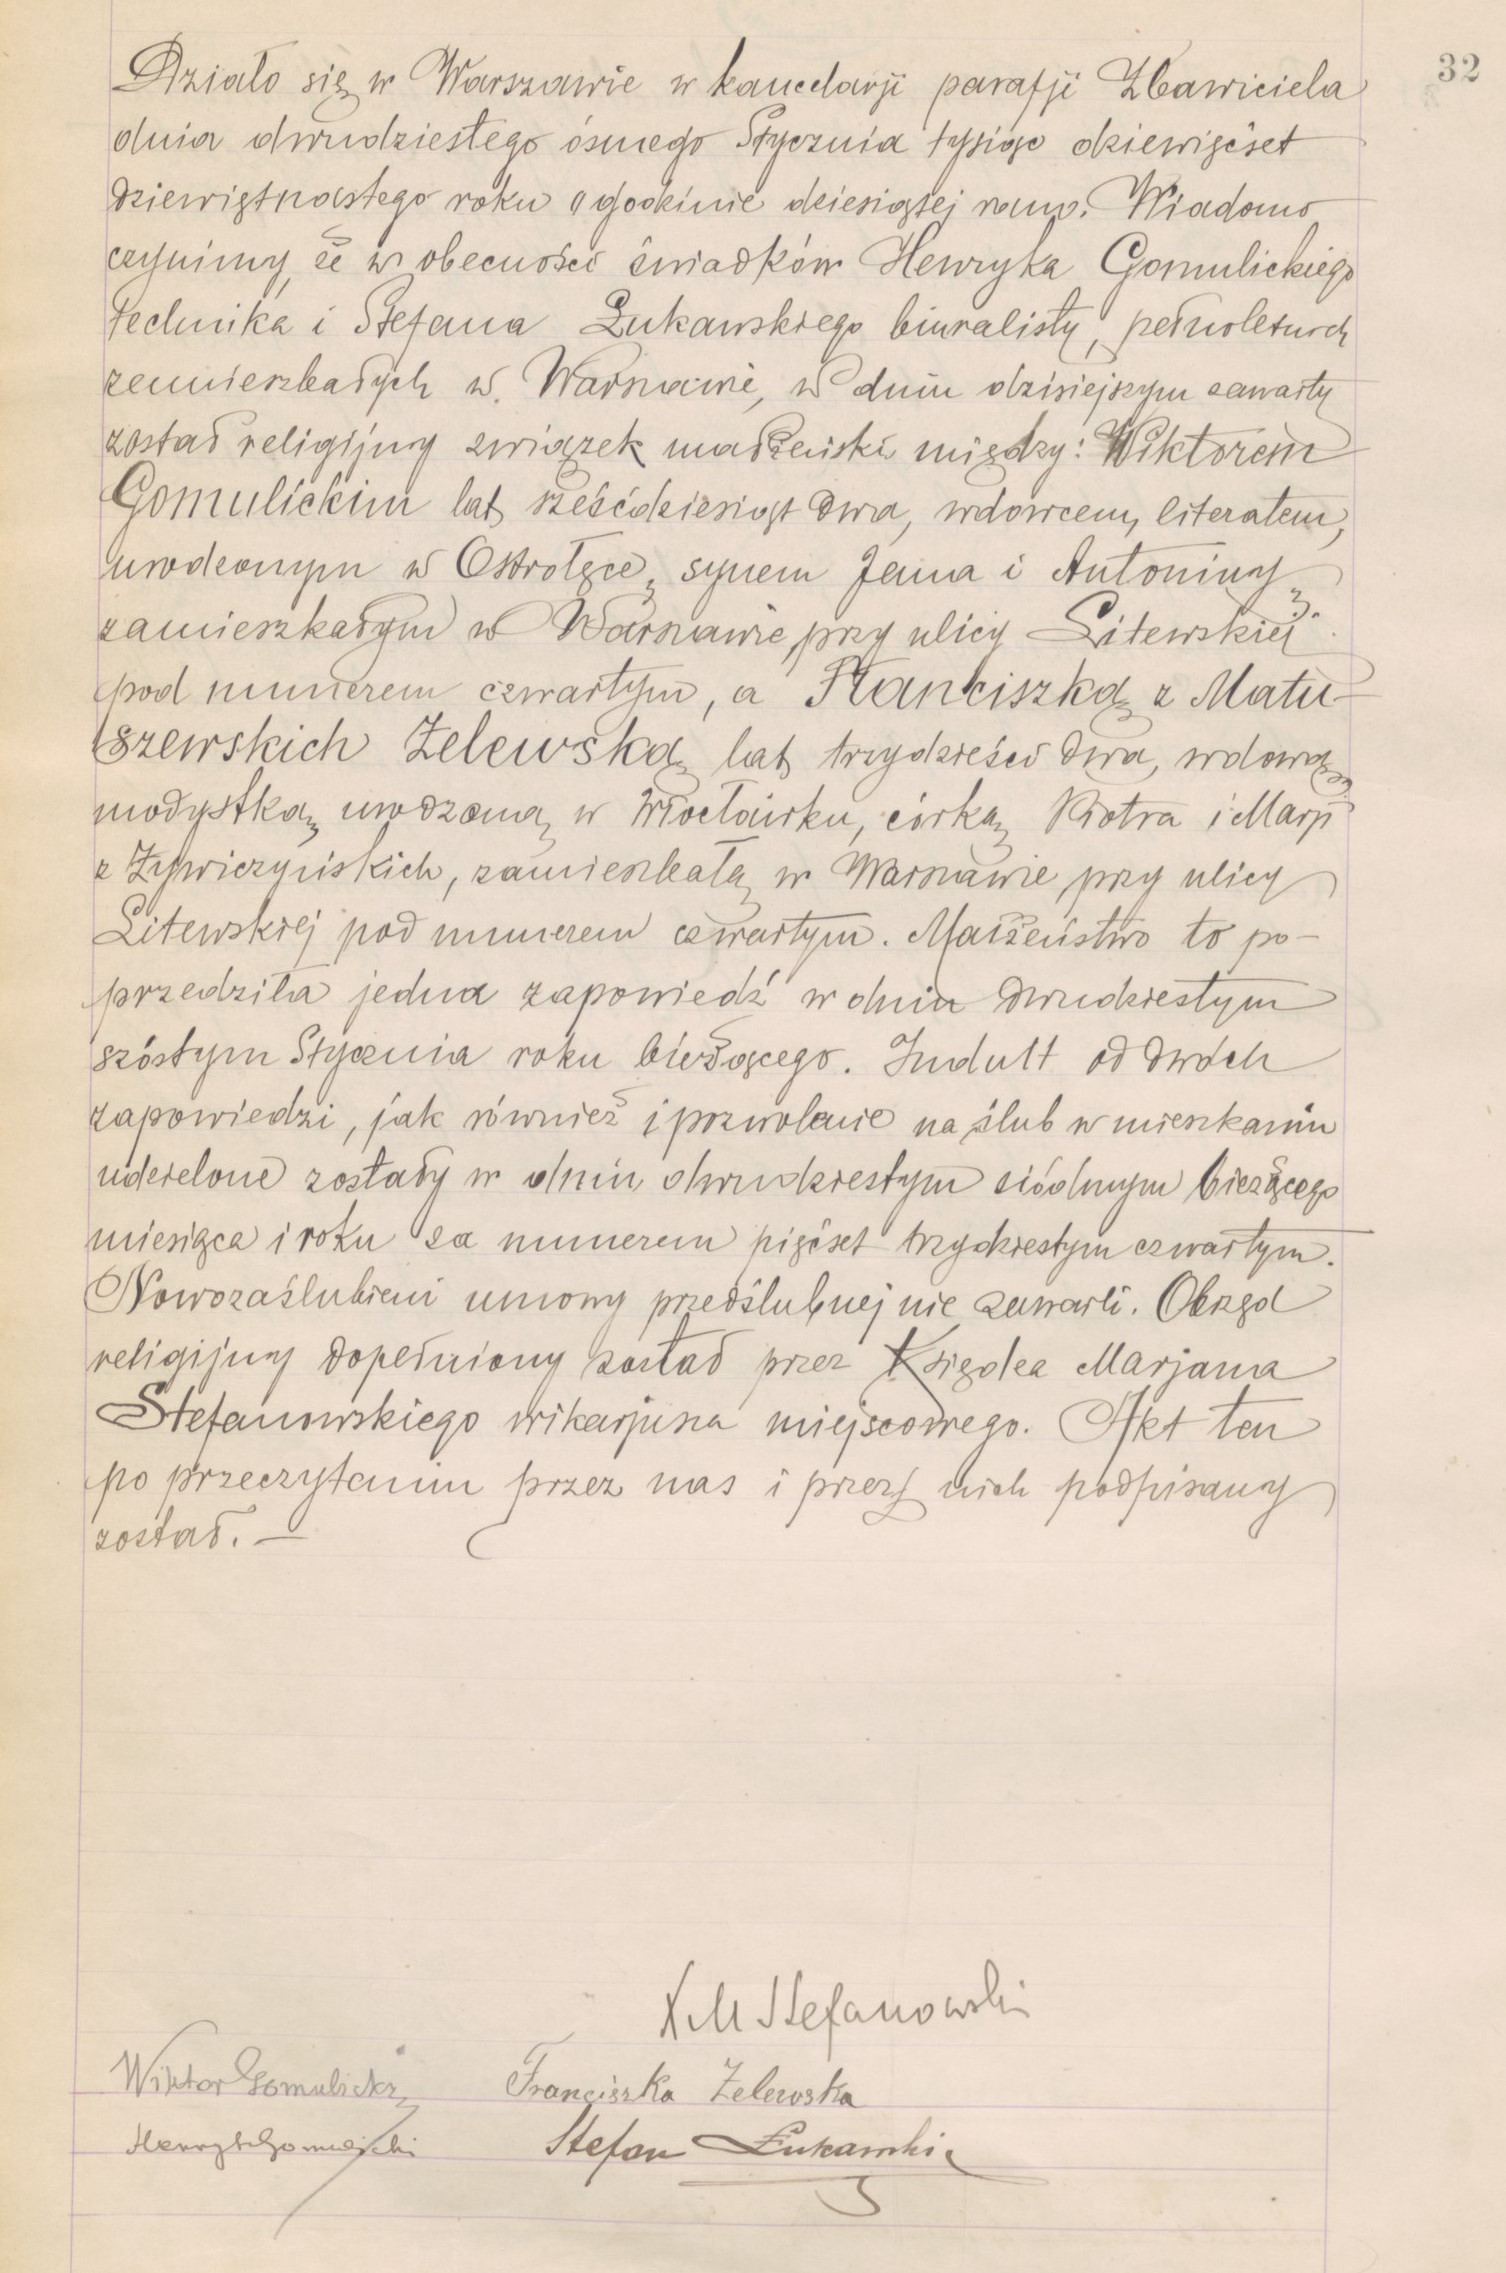 32
Działo się w Warszawie w kancelarji parafji Zbawiciela
dnia dwudziestego ósmego Stycznia tysiąc dziewięćset
dziewiętnastego roku o godzinie dziesiątej rano. Wiadomo
czynimy, że w obecności świadków Henryka Gomulickiego
technika i Stefana Łukawskiego biuralisty, pełnoletnich
zamieszkałych w Warszawie, w dniu dzisiejszym zawarty
został religijny związek małżeński między: Wiktorem
Gomulickim lat sześćdziesiąt dwa, wdowcem, literatem,
urodzonym w Ostrołęce, synem Jana i Antoniny,
zamieszkałym w Warszawie przy ulicy Litewskiej
pod numerem czwartym, a Franciszką z Matu-
szewskich Żelewską, lat trzydzieści dwa, wdową,
modystką, urodzoną w Włocławku, córką Piotra i Marji
z Żywiczyńskich, zamieszkałą w Warszawie przy ulicy
Litewskiej pod numerem czwartym. Małżeństwo to po-
przedziła jedna zapowiedź w dniu dwudziestym
szóstym Stycznia roku bieżącego. Indult od dwóch
zapowiedzi, jak również i pozwolenie na ślub w mieszkaniu
udzielone zostały w dniu dwudziestym siódmym bieżącego
miesiąca i roku za numerem pięćset trzydziestym czwartym.
Nowozaślubieni umowy przedślubnej nie zawarli. Obrzęd
religijny dopełniony został przez Księdza Marjana
Stefanowskiego wikarjusza miejscowego. Akt ten
po przeczytaniu przez nas i przez nich podpisany
został. —
X M Stefanowski
Wiktor Gomulicki Franciszka Żelewska
Henryk Gomulicki Stefan Łukawski